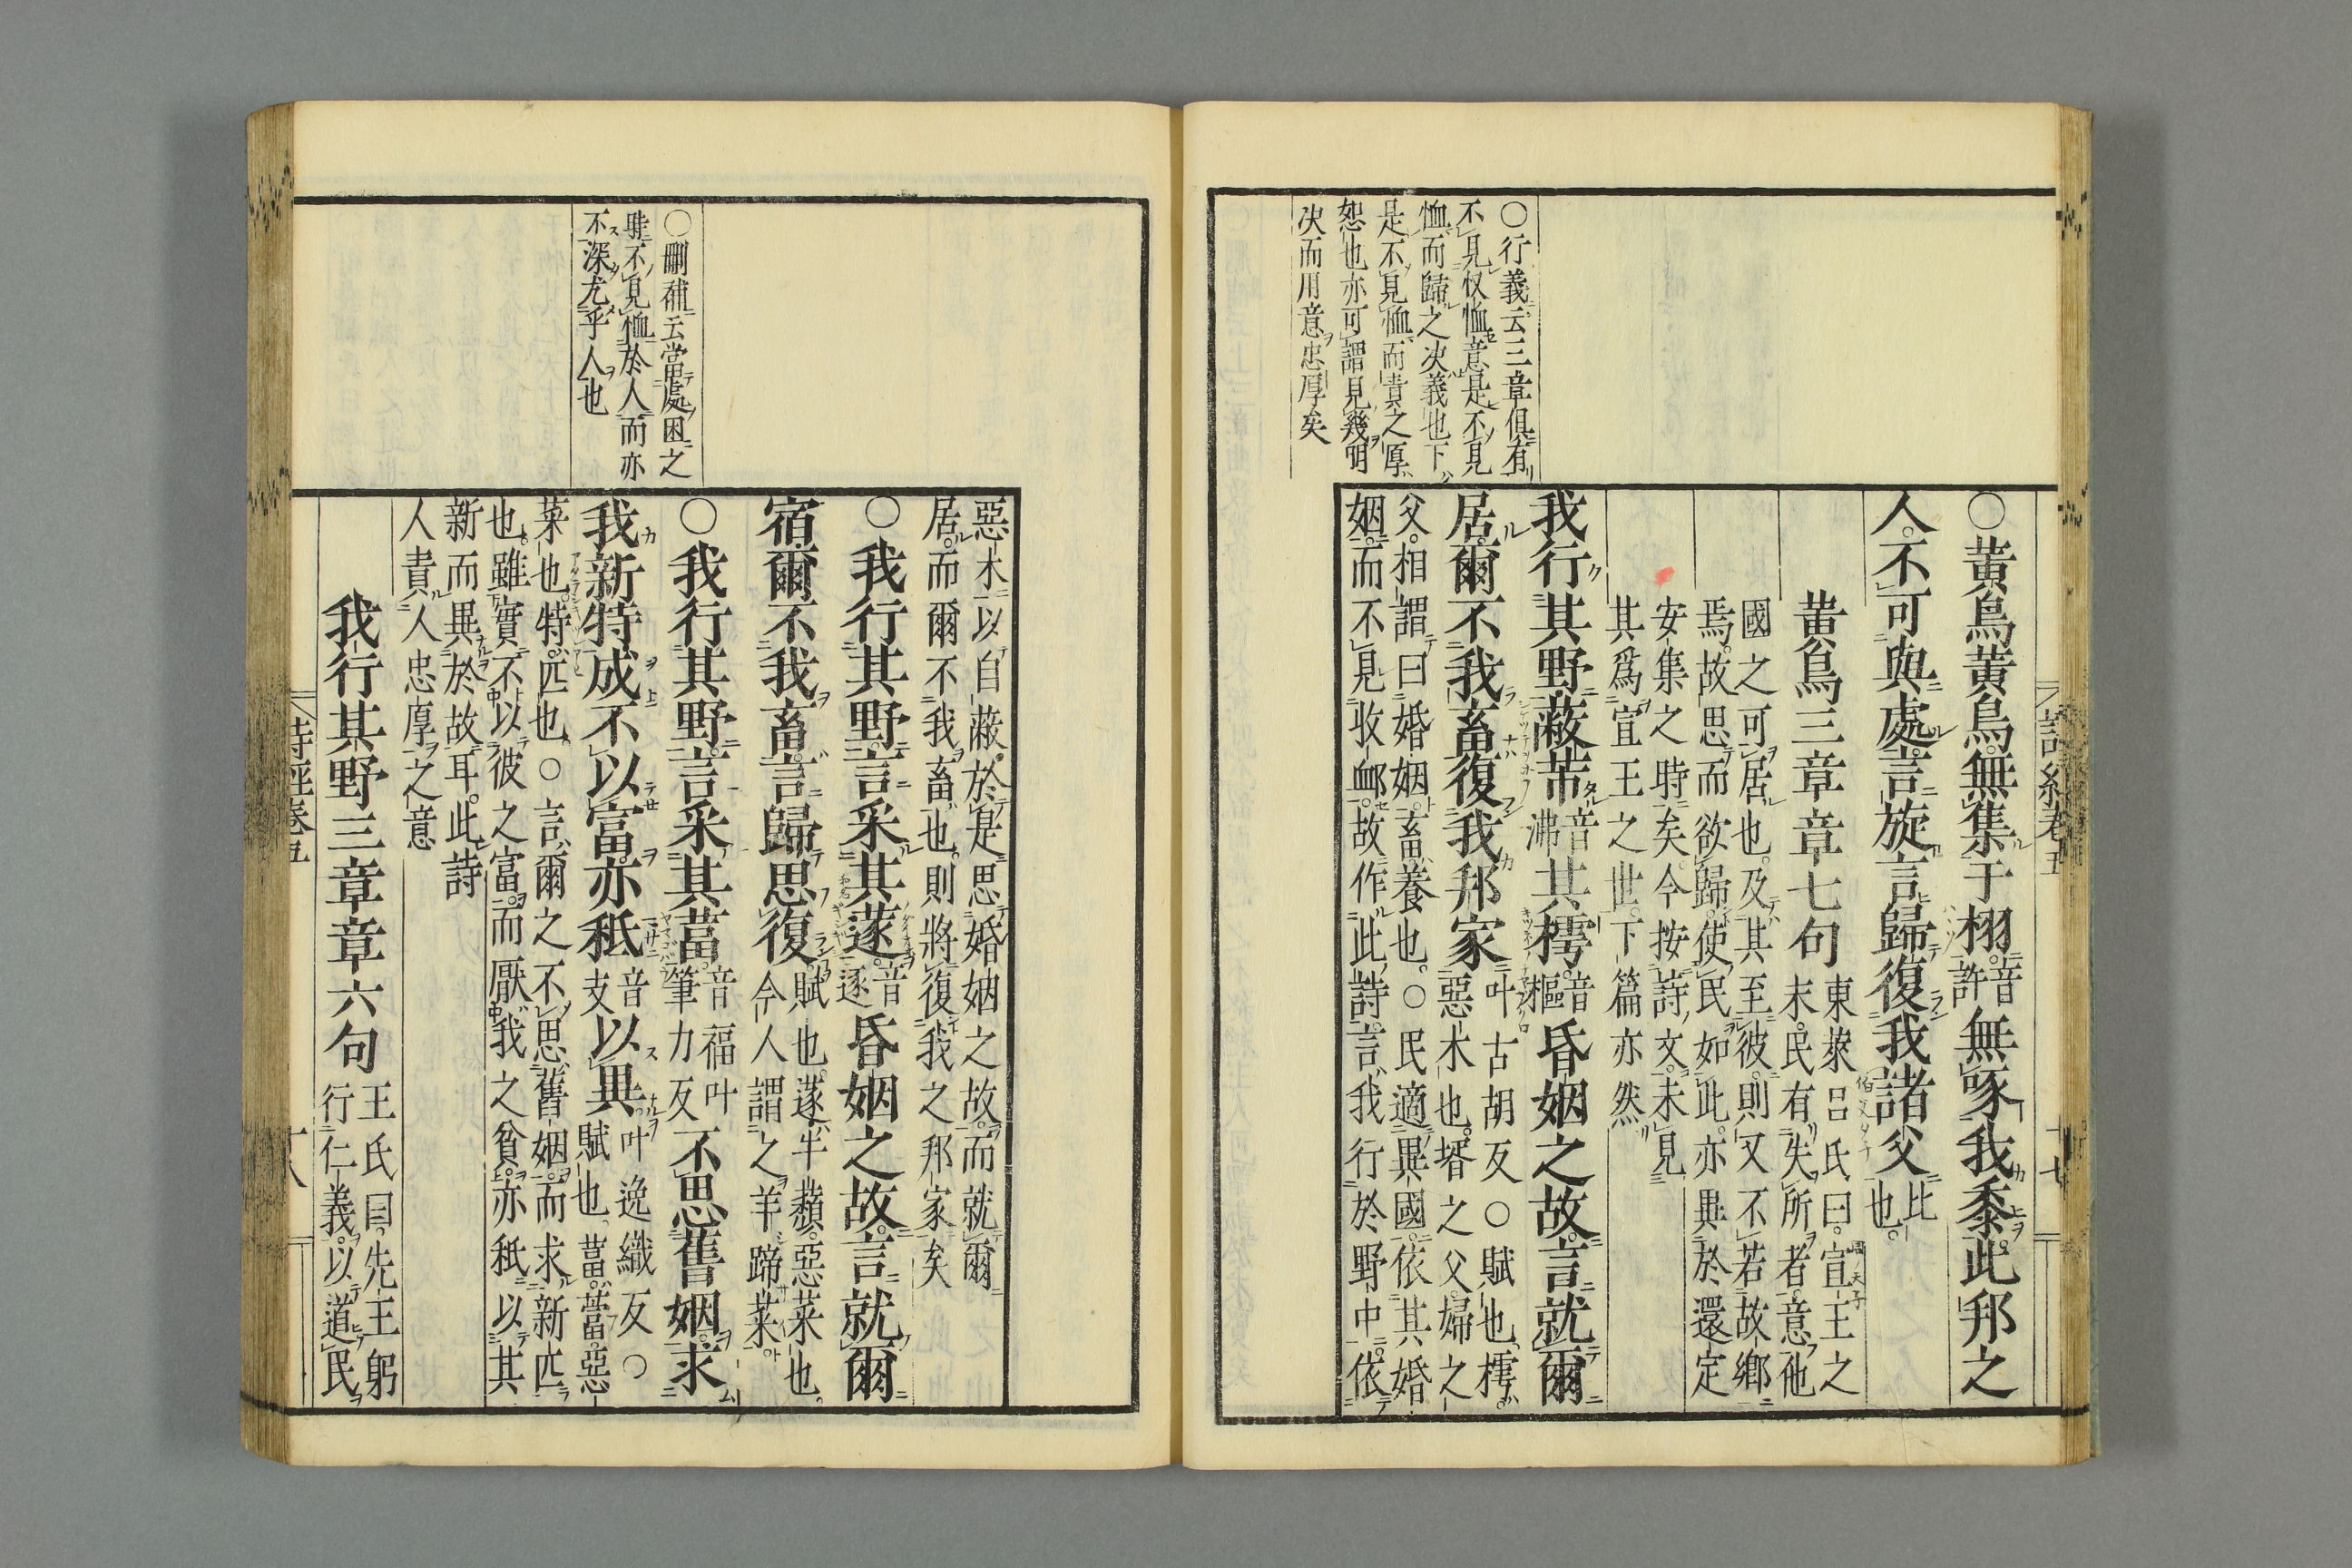 ○行義云三章俱有
不見收恤意是不見
恤而歸之决義也下
是不見恤而責之厚
恕也亦可謂見幾明
决而用意忠厚矣
詩經卷五
十七
○黄鳥黄鳥無集于栩音許無啄我黍此邦之
人不可與處言旋言歸復我諸父比也
黄鳥三章章七句東萊呂氏曰宣王之末民有失所者意他
國之可居也及其至彼則又不若故鄉
焉故思而欲歸使民如此亦異於還定
安集之時矣今按詩文未見
其爲宣王之世下篇亦然
我行其野蔽芾音沸其樗音樞昏姻之故言就爾
居爾不我畜復我邦家叶古胡反○賦也樗惡木也壻之父婦之
父相謂曰婚姻畜養也○民適異國依其婚
姻而不見收卹故作此詩言我行於野中依
○刪補云當處困之
時不見恤於人而亦
不深尤乎人也
惡木以自蔽於是思婚姻之故而就爾
居而爾不我畜也則將復我之邦家矣
○我行其野言采其蓫音逐昏姻之故言就爾
宿爾不我畜言歸思復賦也蓫牛蘈惡菜也今人謂之羊蹄菜
○我行其野言采其葍音福叶筆力反不思舊姻求
我新特成不以富亦秖音支以異叶逸織反○賦也葍䔰惡
菜也特匹也○言爾之不思舊姻而求新匹
也雖實不以彼之富而厭我之貧亦秖以其
新而異於故耳此詩
人責人忠厚之意
我行其野三章章六句王氏曰先王躬行仁義以道民
詩經卷五
十八